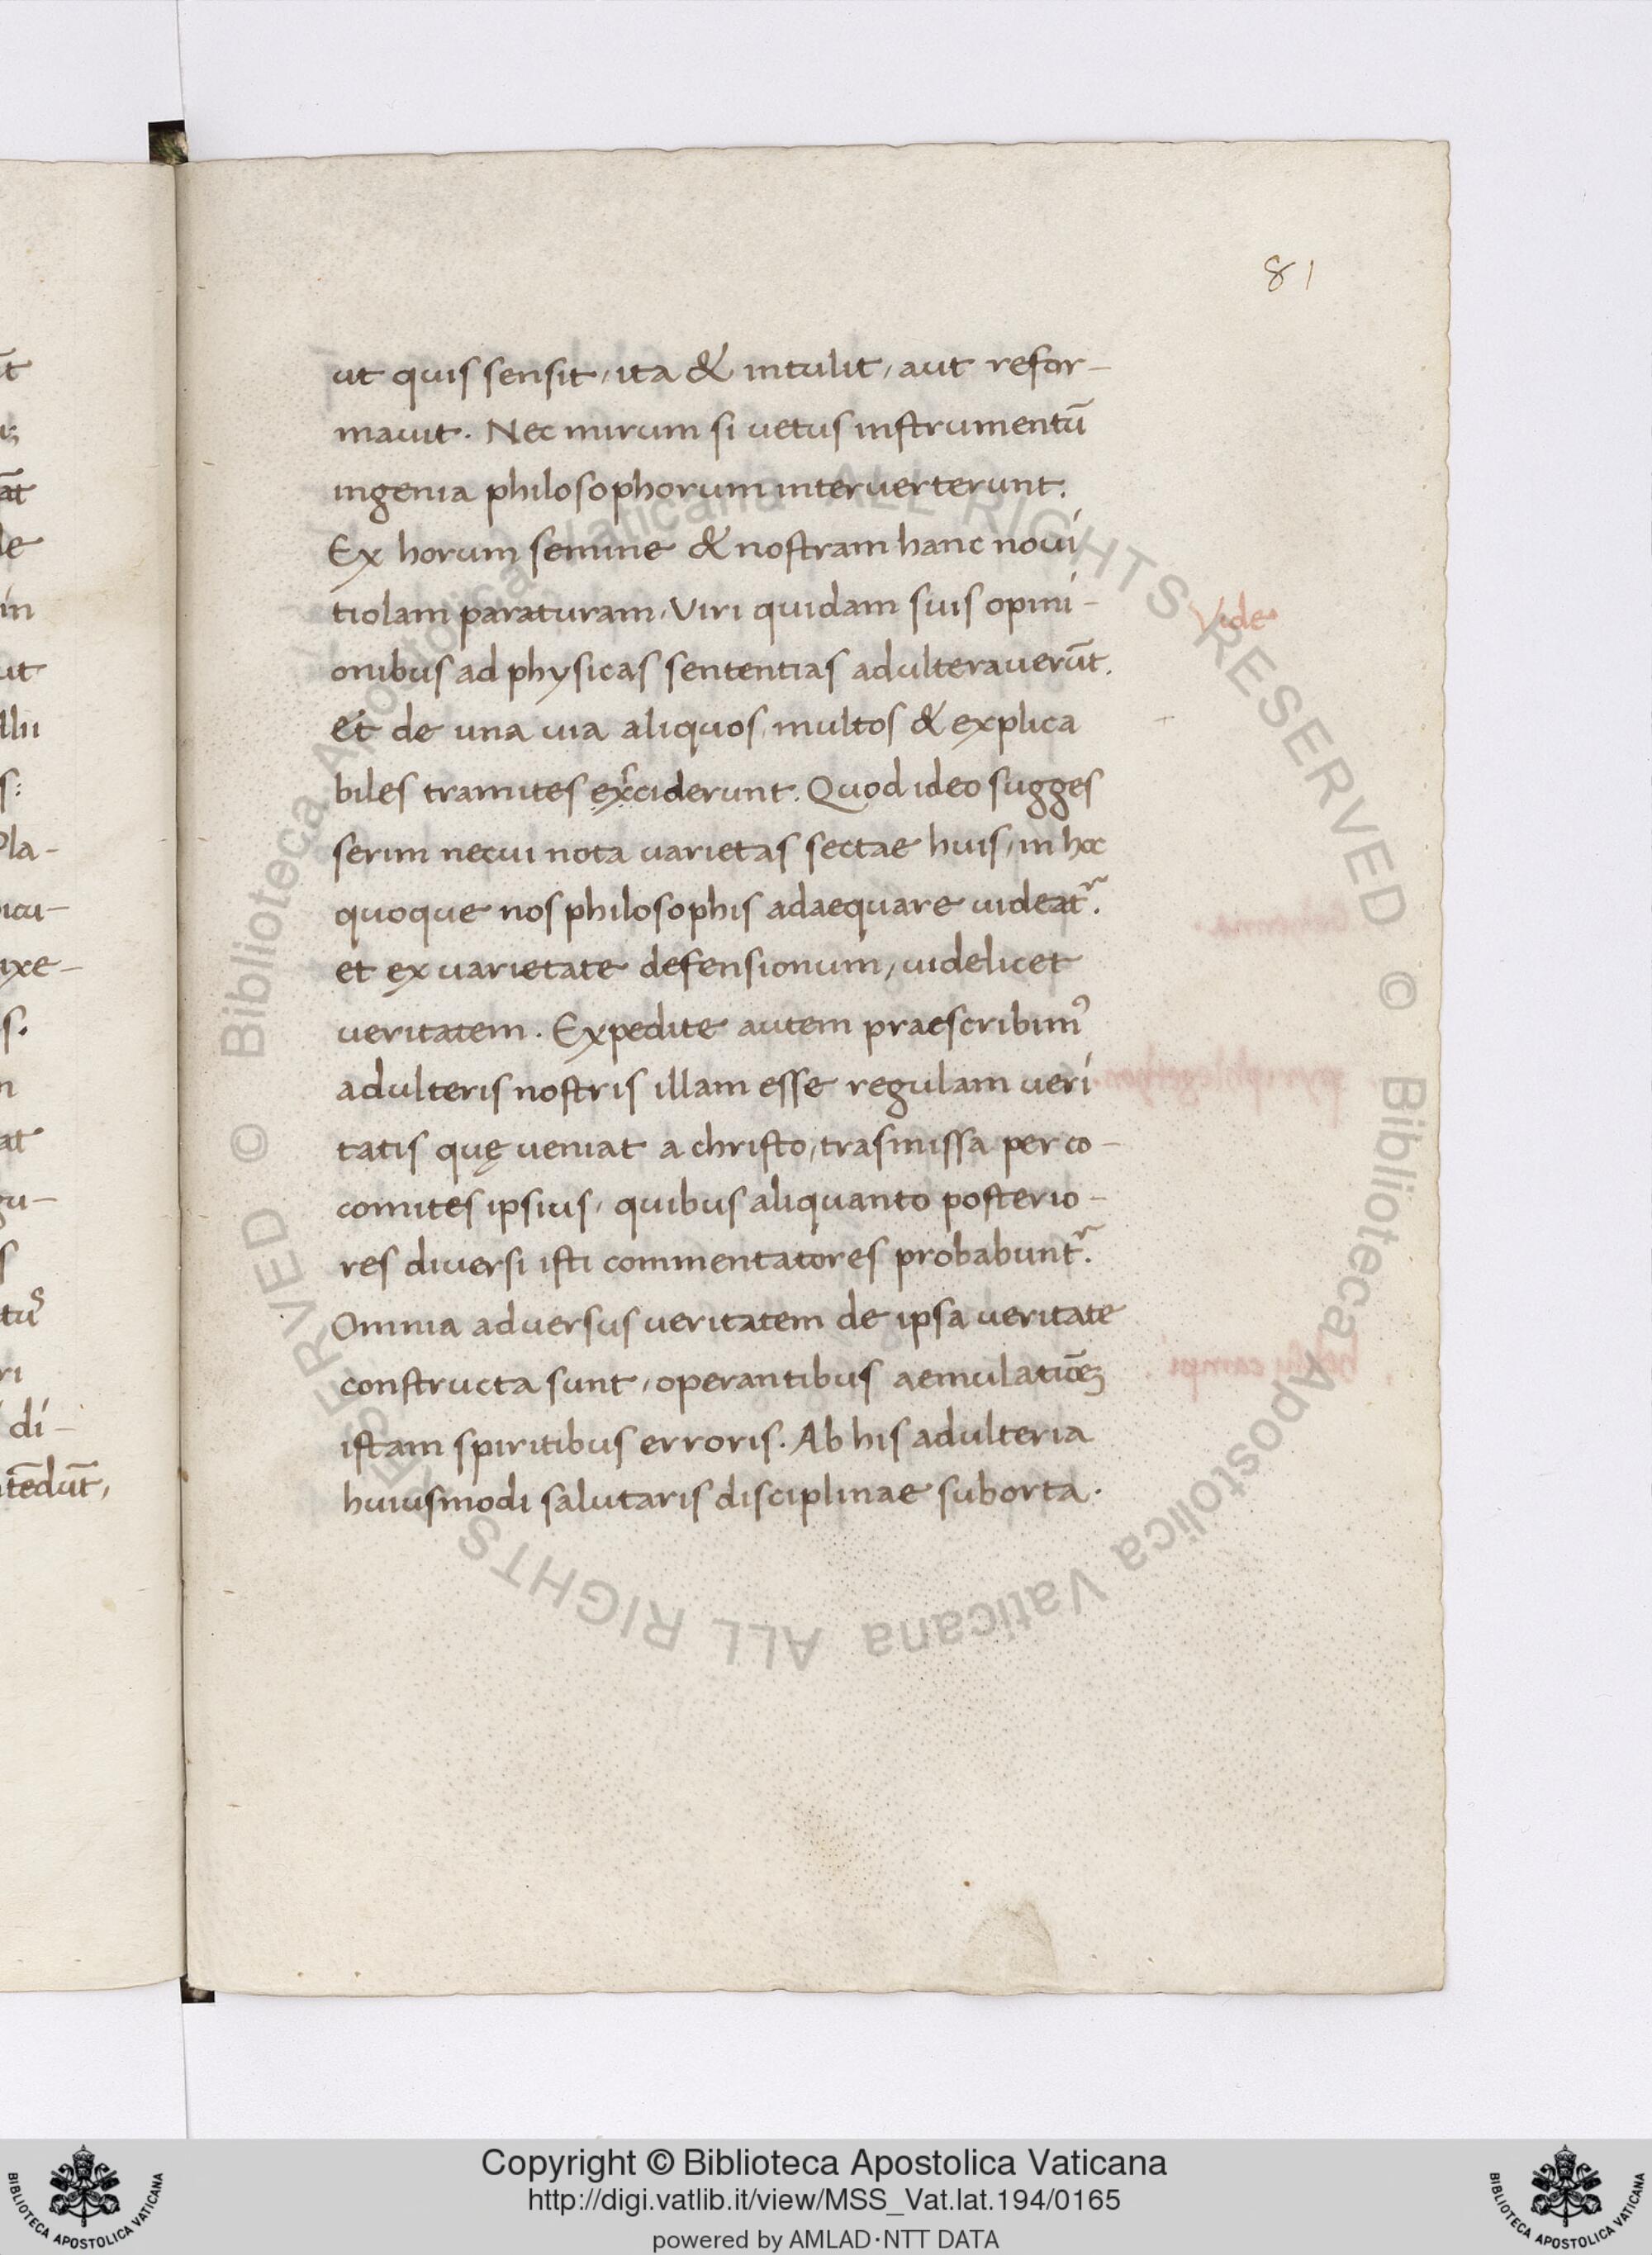 81
ut quis sensit, ita & intulit, aut refor-
mauit. Nec mirum si uetus instrumentū
ingenia philosophorum interuerterunt.
Ex horum semine & nostram hanc noui
tiolam paraturam, Viri quidam suis opini-
Vide
onibus ad physicas sententias adulterauerūt.
et de una uia aliquos multos & explica
biles tramites exciderunt. Quod ideo sugges
serim necui nota uarietas sectae huis, in hoc
quoque nos philosophis adaequare uideat᷑.
et ex uarietate defensionum, uidelicet
ueritatem. Expedite autem praescribimꝰ
adulteris nostris illam esse regulam ueri
tatis quę ueniat a christo, trasmissa per co-
comites ipsius, quibus aliquanto posterio-
res diuersi isti commentatores probabunt᷑.
Omnia aduersus ueritatem de ipsa ueritate
constructa sunt, operantibus aemulatiōeꝫ
istam spiritibus erroris. Ab his adulteria
huiusmodi salutaris disciplinae suborta.
© Biblioteca Apostolica Vaticana ALL RIGHTS RESERVED
© Biblioteca Apostolica Vaticana ALL RIGHTS RESERVED
Copyright © Biblioteca Apostolica Vaticana
http://digi.vatlib.it/view/MSS_Vat.lat.194/0165
powered by AMLAD·NTT DATA
BIBLIOTECA APOSTOLICA VATICANA
BIBLIOTECA APOSTOLICA VATICANA